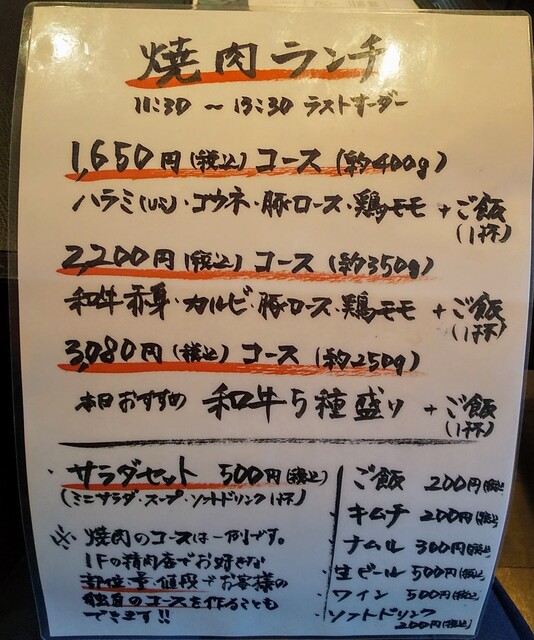 焼肉ランチ
11:30 ～ 13:30 ラストオーダー
1,650円(税込)コース(約400g)
ハラミ(US)・コウネ・豚ロース・鶏モモ +ご飯
(1杯)
2,200円(税込)コース(約350g)
和牛赤身・カルビ・豚ロース・鶏モモ +ご飯
(1杯)
3,080円(税込)コース(約250g)
本日おすすめ 和牛5種盛り +ご飯
(1杯)
・サラダセット 500円(税込)
(ミニサラダ・スープ・ソフトドリンク1杯)
※ 焼肉のコースは一例です。
1Fの精肉店でお好きな
部位・量・値段でお客様の
独自のコースを作ることも
できます!!
・ご飯 200円(税込)
・キムチ 200円(税込)
・ナムル 300円(税込)
・生ビール 500円(税込)
・ワイン 500円(税込)
・ソフトドリンク
200円(税込)